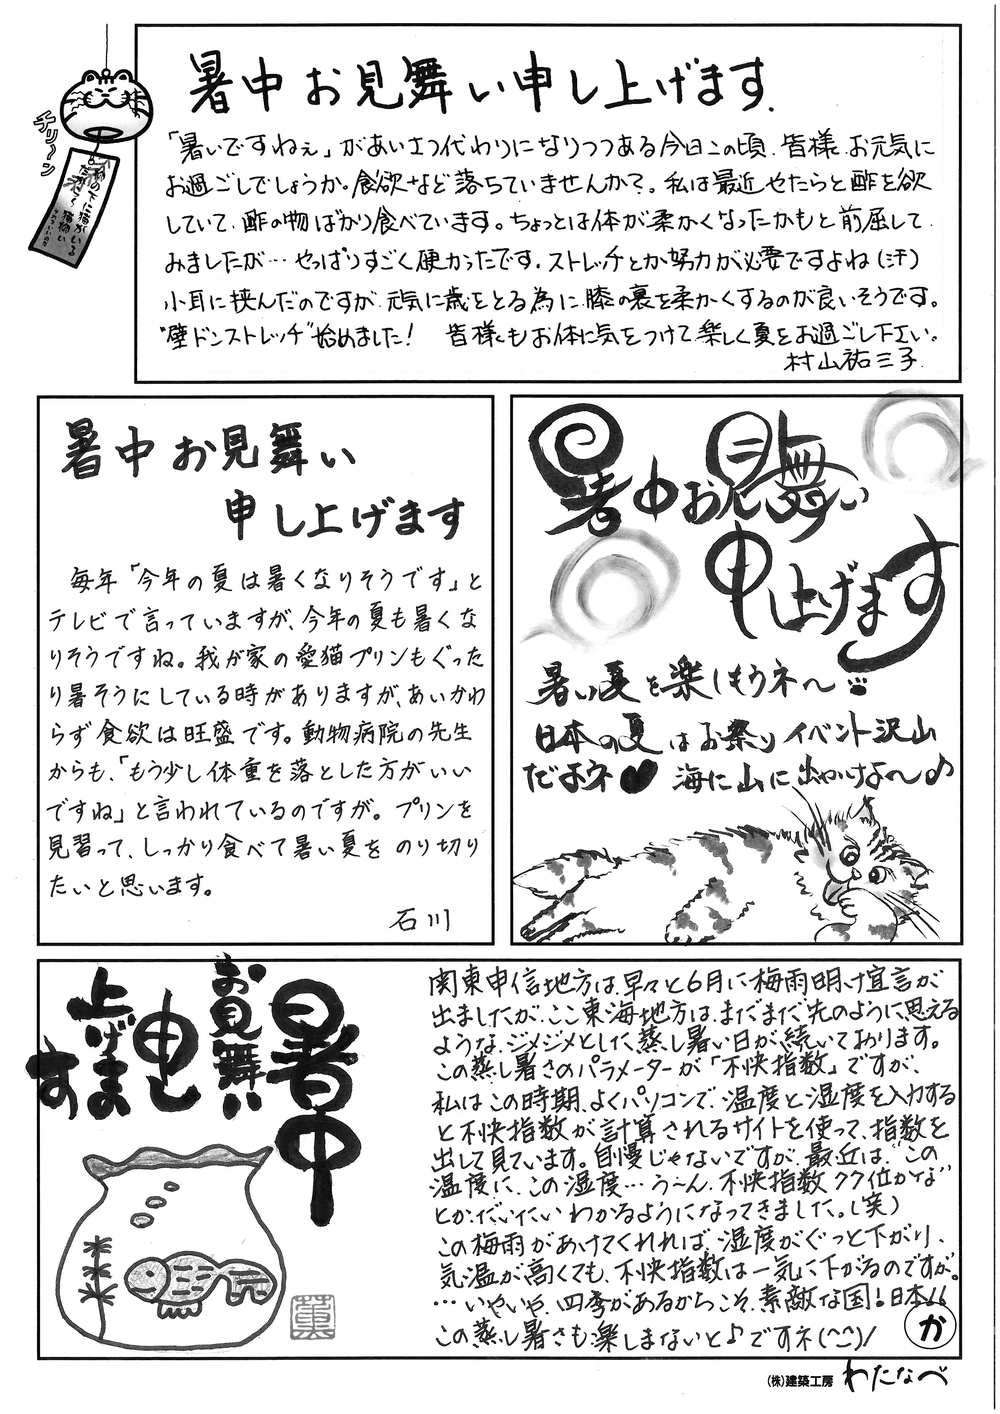 チリ〜ン
暑中お見舞い申し上げます.
「暑いですねぇ」があいさつ代わりになりつつある今日この頃、皆様、お元気に
お過ごしでしょうか。食欲など落ちていませんか?。私は最近やたらと酢を欲
していて、酢の物ばかり食べています。ちょっとは体が柔かくなったかもと前屈して
みましたが…やっぱりすごく硬かったです。ストレッチとか努力が必要ですよね(汗)
小耳に挟んだのですが、元気に歳をとる為に膝の裏を柔かくするのが良いそうです。
"壁ドンストレッチ"始めました! 皆様もお体に気をつけて楽しく夏をお過ごし下さい。
村山祐三子
暑中お見舞い
申し上げます
毎年「今年の夏は暑くなりそうです」と
テレビで言っていますが、今年の夏も暑くな
りそうですね。我が家の愛猫プリンもぐった
り暑そうにしている時がありますが、あいかわ
らず食欲は旺盛です。動物病院の先生
からも、「もう少し体重を落とした方がいい
ですね」と言われているのですが。プリンを
見習って、しっかり食べて暑い夏をのり切り
たいと思います。
石川
暑中お見舞い
申し上げます
暑い夏を楽しもうネ〜
日本の夏はお祭りイベント沢山
だよネ♥ 海に山に出かけよ〜♪
暑中
お見舞い
申し
上げま
す
関東甲信地方は、早々と6月に梅雨明け宣言が
出ましたが、ここ東海地方は、まだまだ先のように思える
ような、ジメジメとした、蒸し暑い日が続いております。
この蒸し暑さのパラメーターが「不快指数」ですが、
私はこの時期、よくパソコンで、温度と湿度を入力する
と不快指数が計算されるサイトを使って、指数を
出して見ています。自慢じゃないですが、最近は、"この
温度に、この湿度…う〜ん、不快指数77位かな"
とか、だいたいわかるようになってきました。(笑)
この梅雨があけてくれれば、湿度がぐっと下がり、
気温が高くても、不快指数は一気に下がるのですが。
…いやいや、四季があるからこそ、素敵な国!日本
この蒸し暑さも楽しまないと♪ですネ(^^)/
か
薫
(株)建築工房 わたなべ